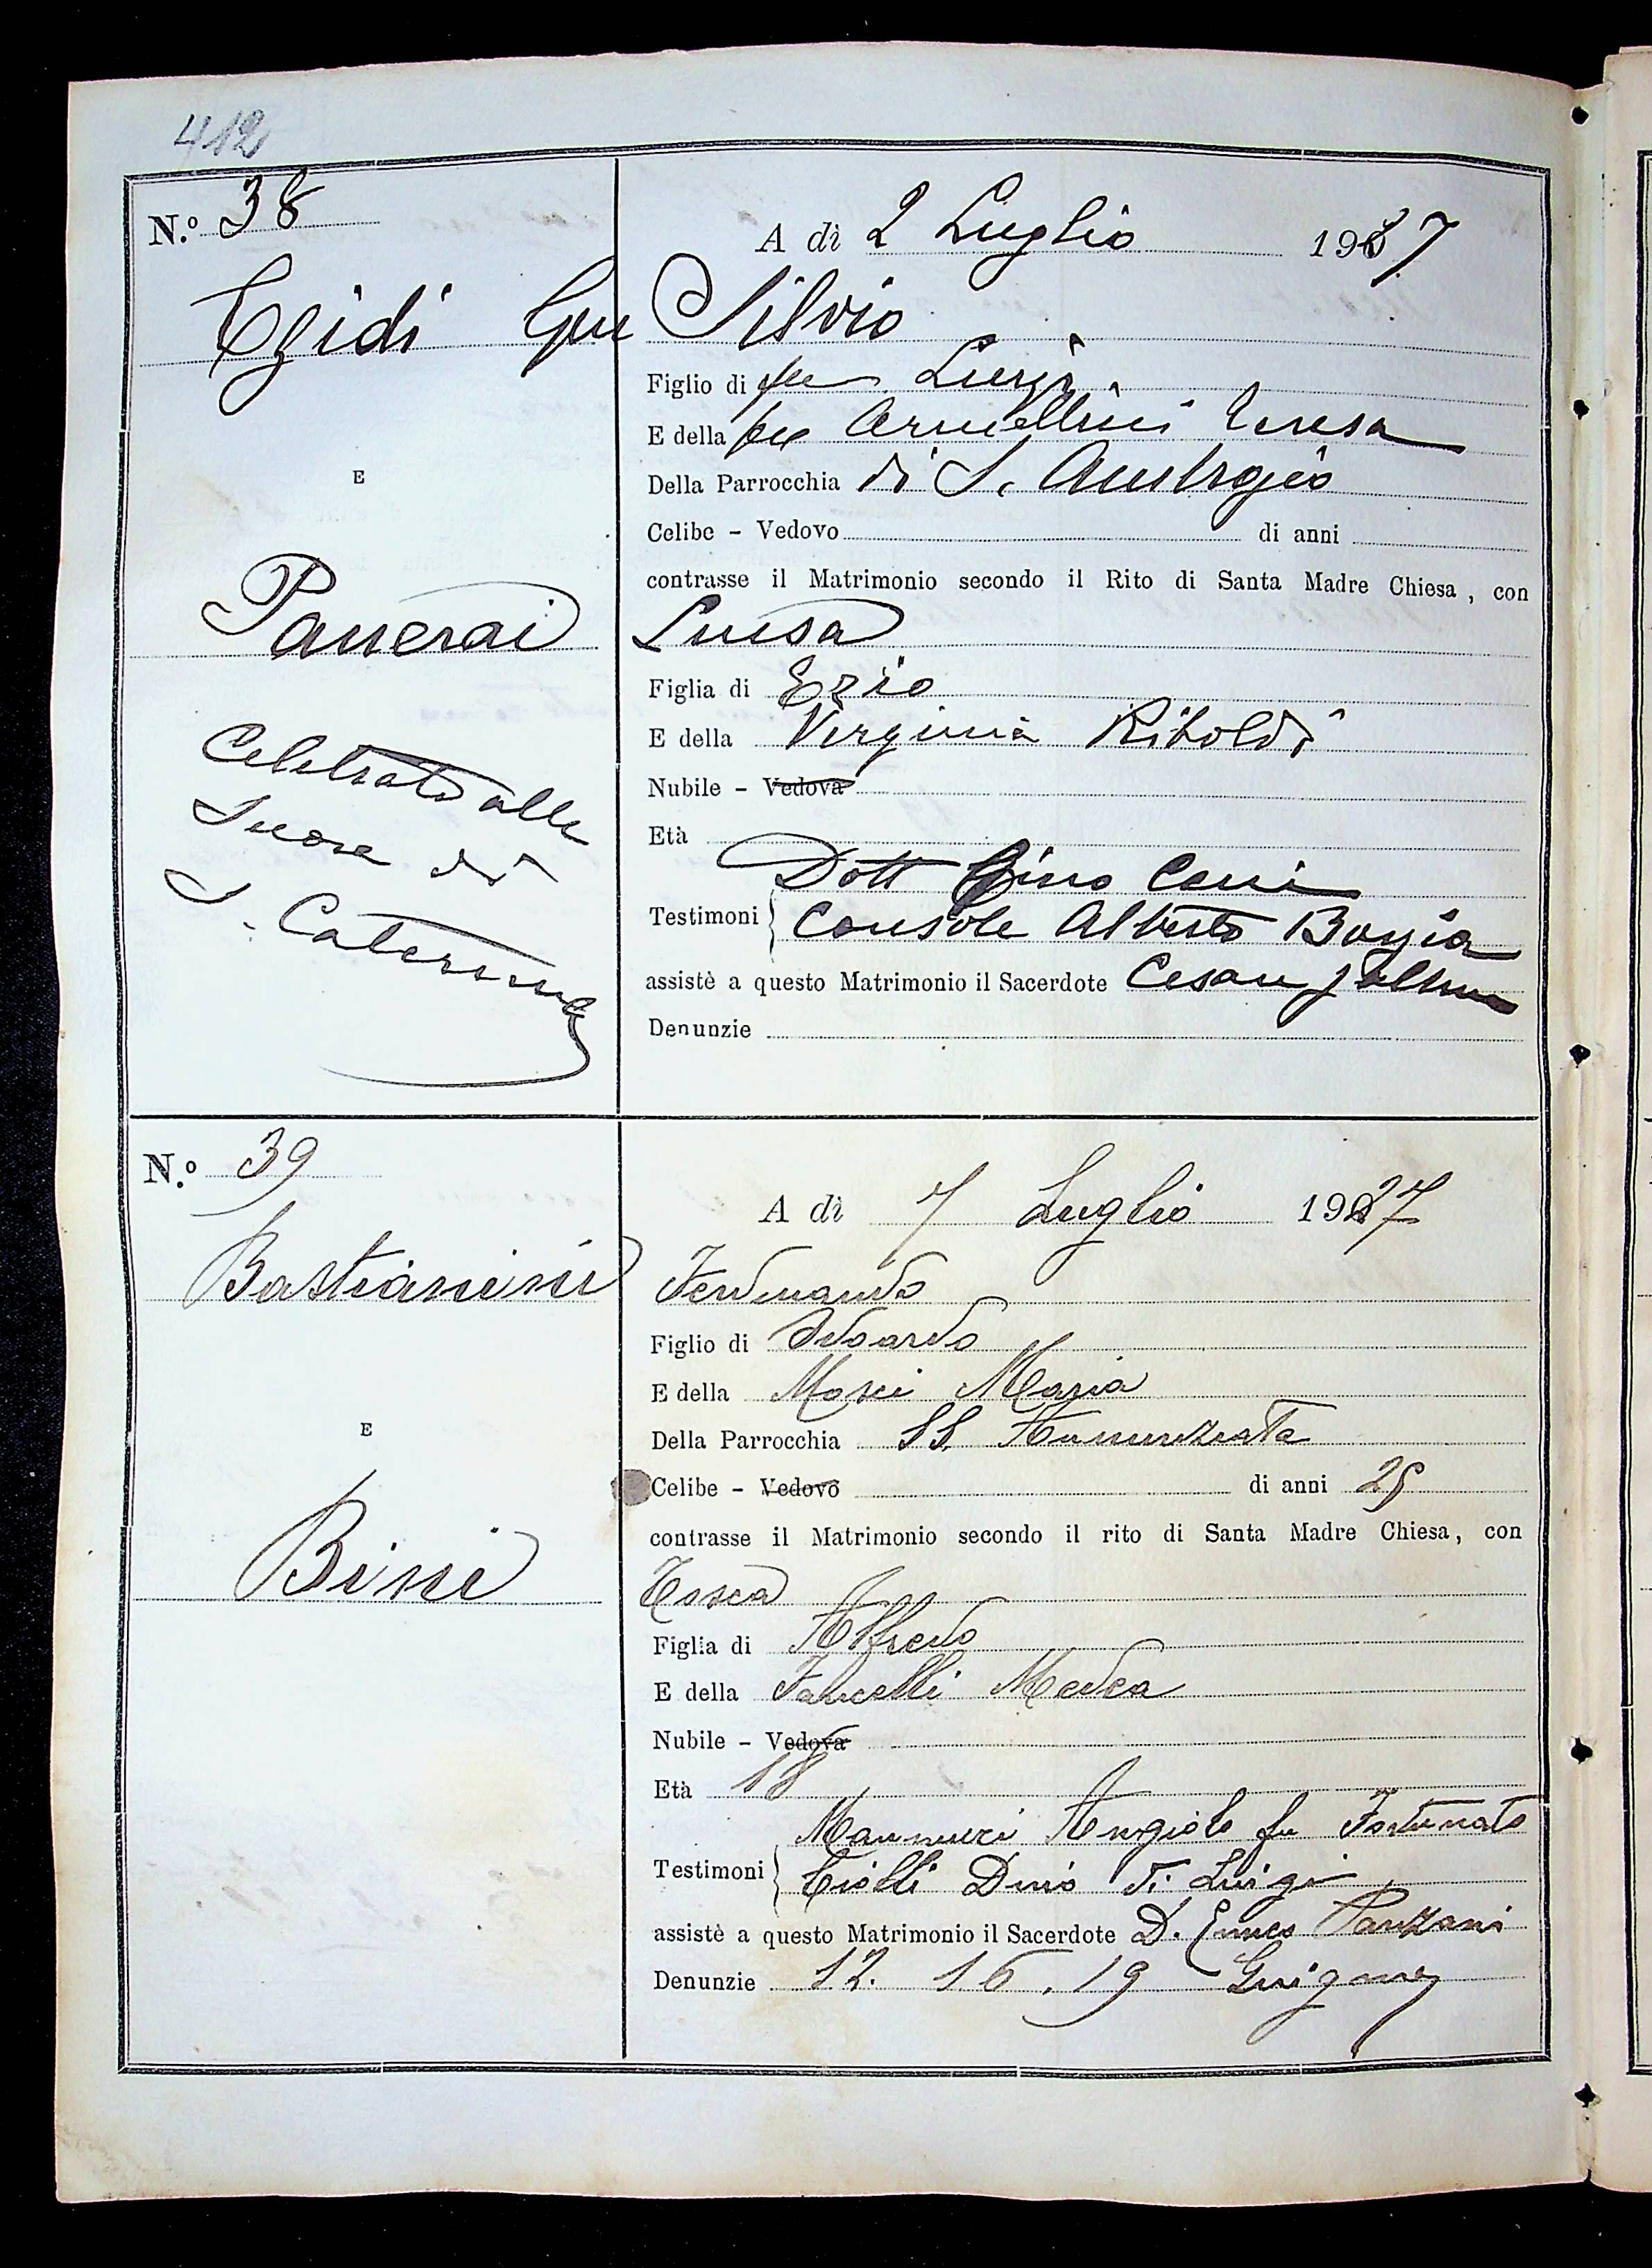 412
N.º 38
A dì 2 Luglio 1927
Egidi Silvio
Figlio di fu Luigi
E della fu Armellini Teresa
Della Parrocchia di S. Ambrogio
Celibe - Vedovo di anni
E
contrasse il Matrimonio secondo il Rito di Santa Madre Chiesa, con
Panerai Luisa
Figlia di Ezio
E della Virginia Riboldi
Nubile - Vedova
Età
Celebrato alle
Suore di
S. Caterina
Dott Gino
Testimoni
Console Alberto
assistè a questo Matrimonio il Sacerdote Cesare
Denunzie
N.º 39
A dì 7 Luglio 1927
Bastianini Ferdinando
Figlio di Edoardo
E della Masi Maria
Della Parrocchia SS. Annunziata
E
Celibe - Vedovo di anni 25
contrasse il Matrimonio secondo il rito di Santa Madre Chiesa, con
Bini Tosca
Figlia di Alfredo
E della Fancelli Medea
Nubile - Vedova
Età 18
Mannucci Angiolo fu Fortunato
Testimoni
Ciolli Dino di Luigi
assistè a questo Matrimonio il Sacerdote D. Panzani
Denunzie 12. 16. 19 Giugno